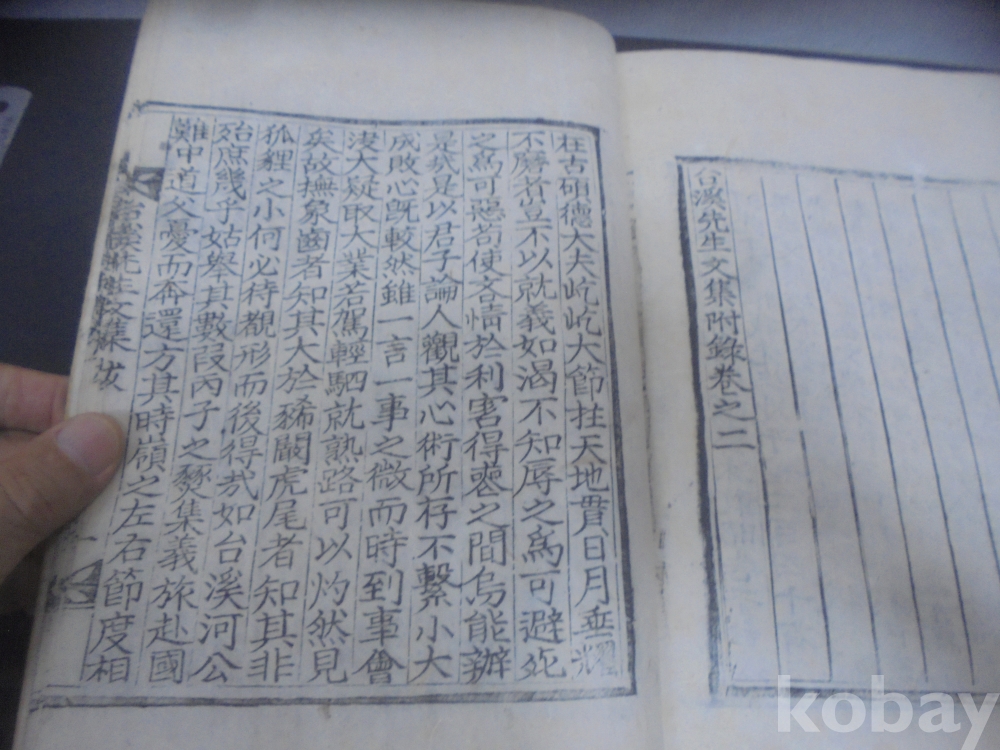 台溪先生文集附錄卷之二
古碩德大夫屹屹大節拄天地貫日月垂耀
不磨者豈不以就義如渴不知辱之爲可避死
之爲可惡苟使吝情於利害得喪之間烏能辦
是哉是以君子論人觀其心術所存不繫小大
成敗心旣較然雖一言一事之微而時到事會
大疑取大業若駕輕駟就熟路可以灼然見
矣故撫象齒者知其大於豨闞虎尾者知其非
狐貍之小何必待覩形而後得哉如台溪河公
殆庶幾乎姑舉其數段丙子之燹集義旅赴國
難中道父憂而奔還方其時嶺之左右節度相
台溪先生文集 跋
kobay